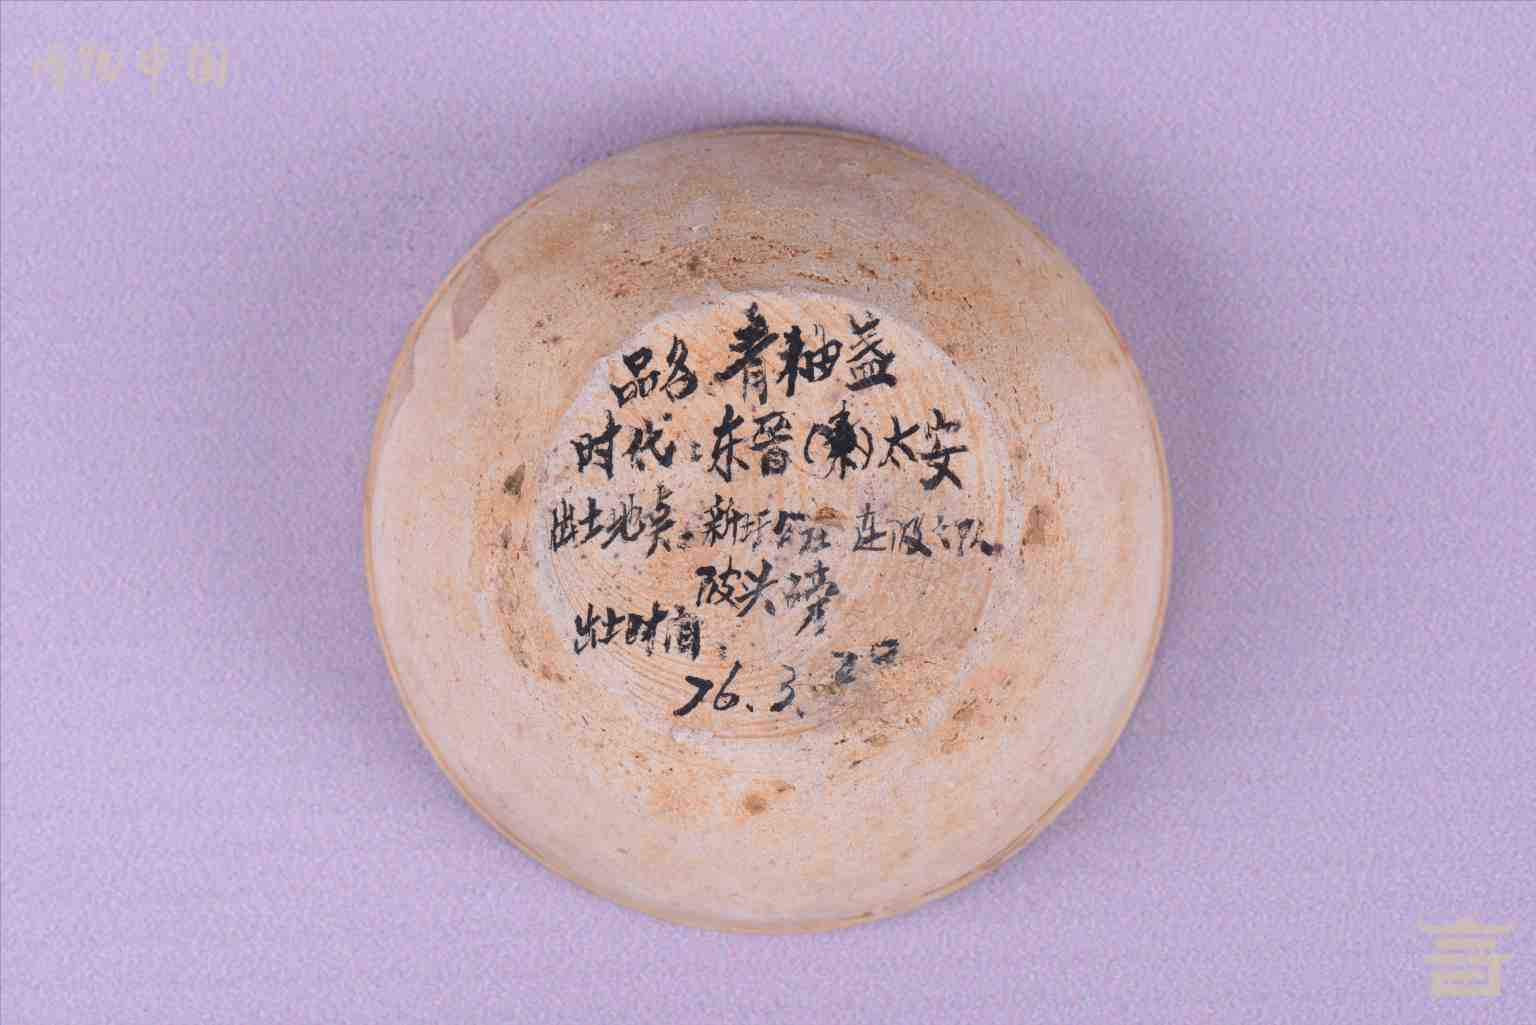 博物中国
品名 青釉盏
时代:东晋(秦)太安
出土地点:新圩公社 连陂大队
陂头
出土时间:
76.3.20